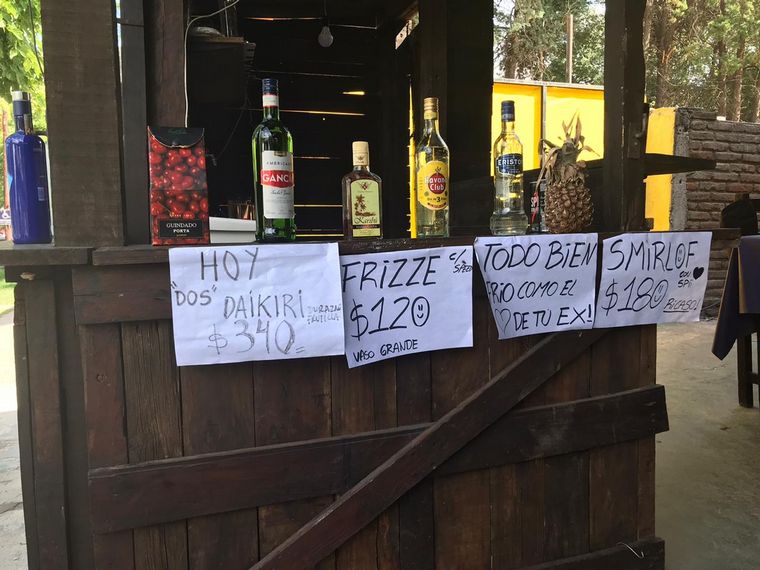 AMERICANO
GANCIA
GUINDADO
PORTA
Karibu
Havana
Club
3
ERISTOFF
HOY
"DOS" DAIKIRI DURAZNO
FRUTILLA
$340=
FRIZZE C/
SPEED
$120
VASO GRANDE
TODO BIEN
FRIO COMO EL
DE TU EX!
SMIRLOF
CON
SPEED
$180
PICASO!